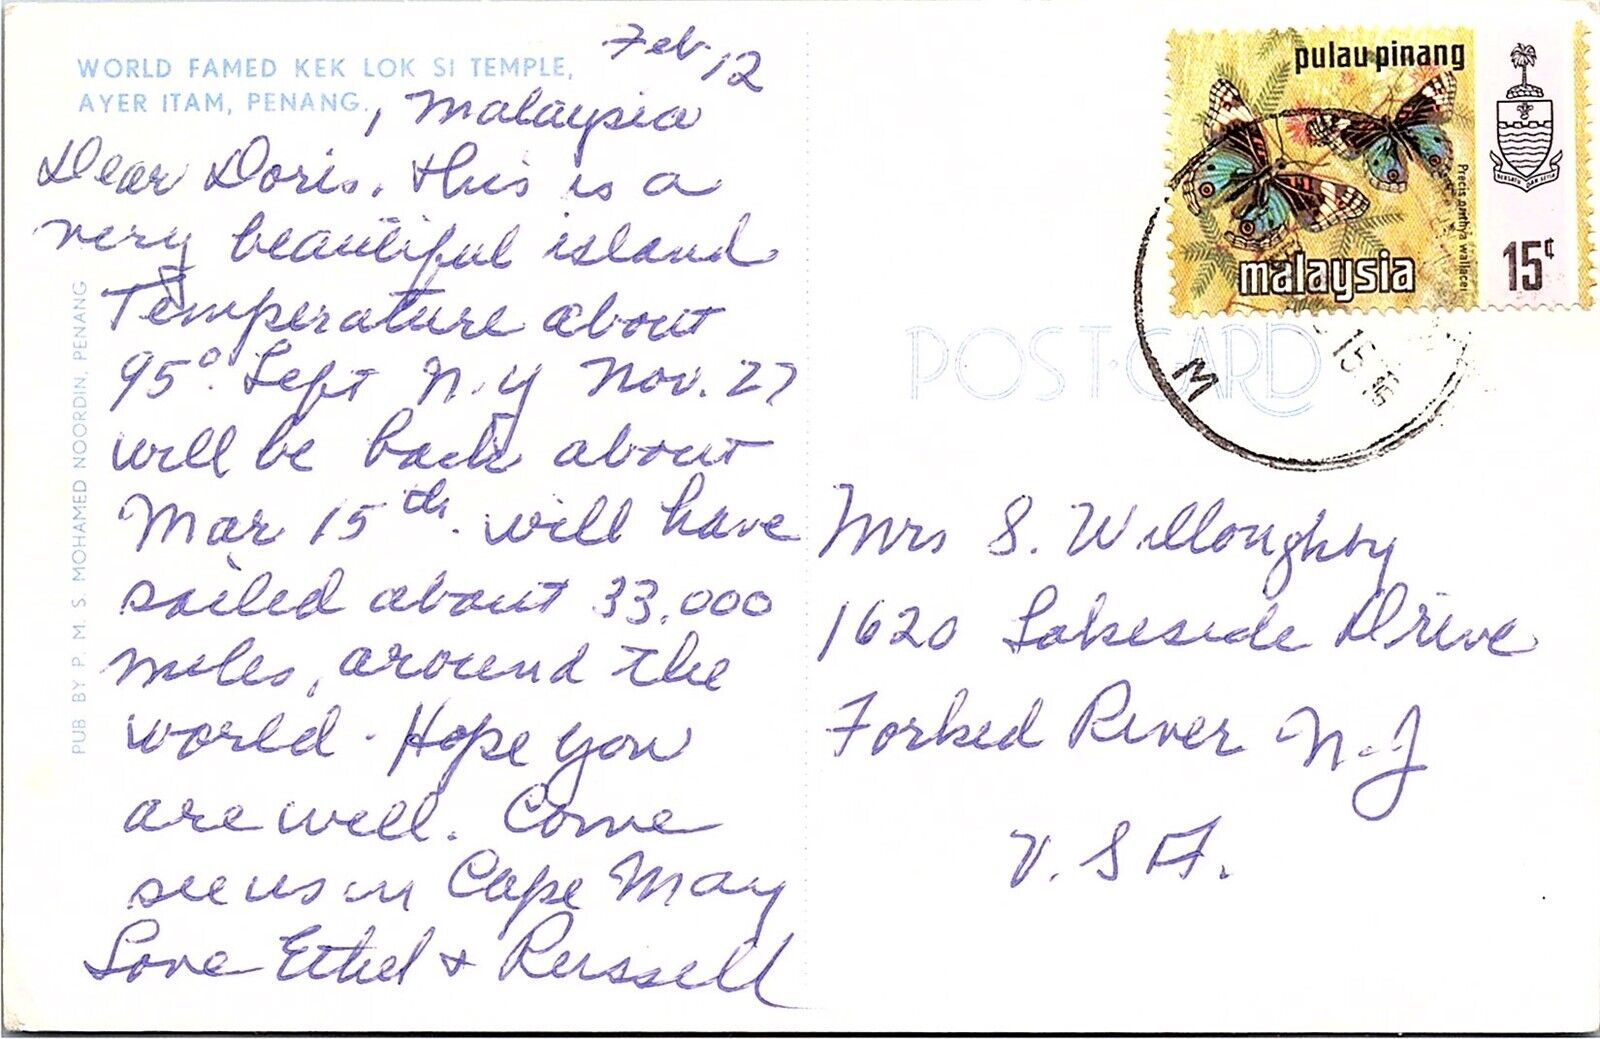 WORLD FAMED KEK LOK SI TEMPLE,
AYER ITAM, PENANG.
Feb 12
, Malaysia
Dear Doris. this is a
very beautiful island
Temperature about
95°. Left N.Y Nov. 27
will be back about
Mar 15th. will have
sailed about 33,000
miles, around the
world. Hope you
are well. Come
see us in Cape May
Love Ethel + Russell
PUB BY P. M. S. MOHAMED NOORDIN, PENANG
pulau pinang
malaysia
Precis orithya wallacei
15¢
BERSATU DAN SETIA
POST·CARD
M
15
Mrs S. Willoughby
1620 Lakeside Drive
Forked River N.J
U.S.A.